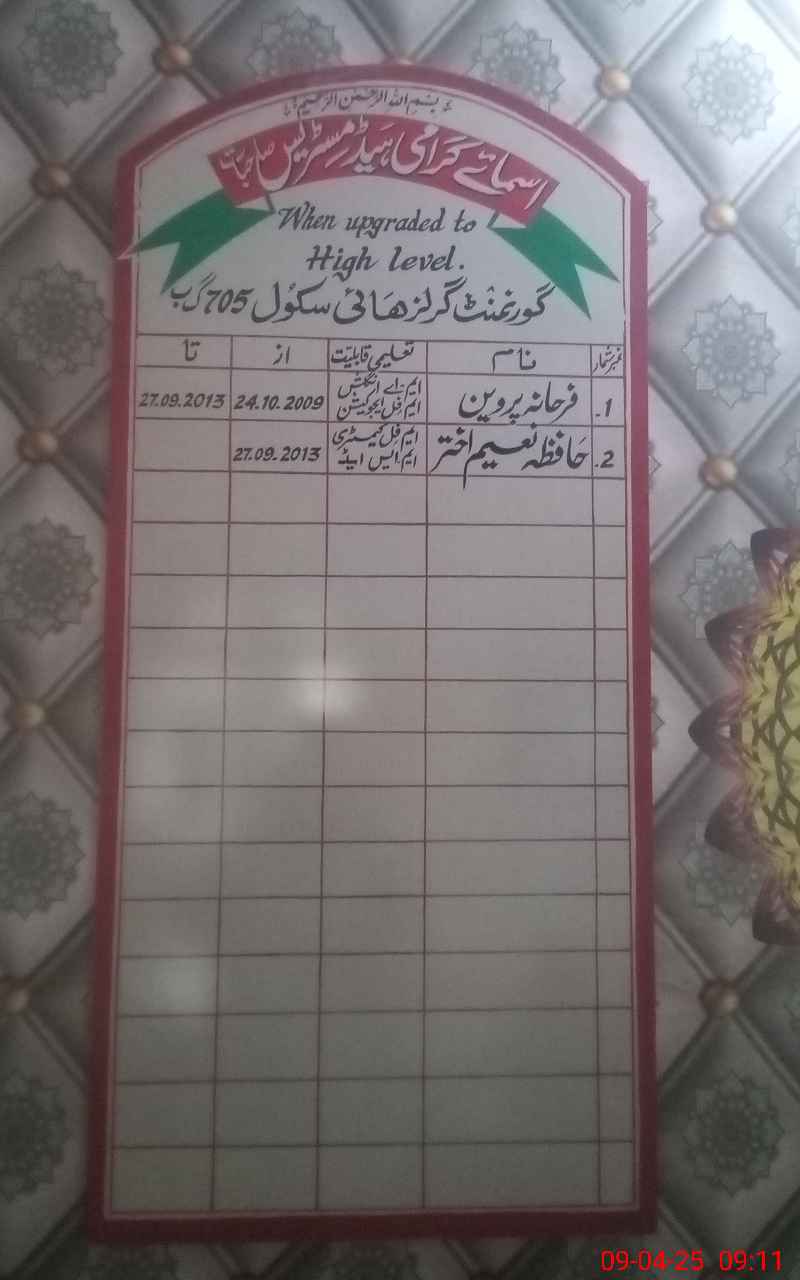 بسم الله الرحمن الرحيم
اسمائے گرامی ہیڈ مسٹریس صاحبات
When upgraded to
High level.
گورنمنٹ گرلز ھائی سکول 705 گ ب
نمبر شمار نام تعلیمی قابلیت از تا
1. فرحانہ پروین ایم-اے انگلش ایم فل ایجوکیشن 24.10.2009 27.09.2013
2. حافظہ نعیم اختر ایم فل کیمسٹری ایم ایس ایڈ 27.09.2013
09-04-25 09:11